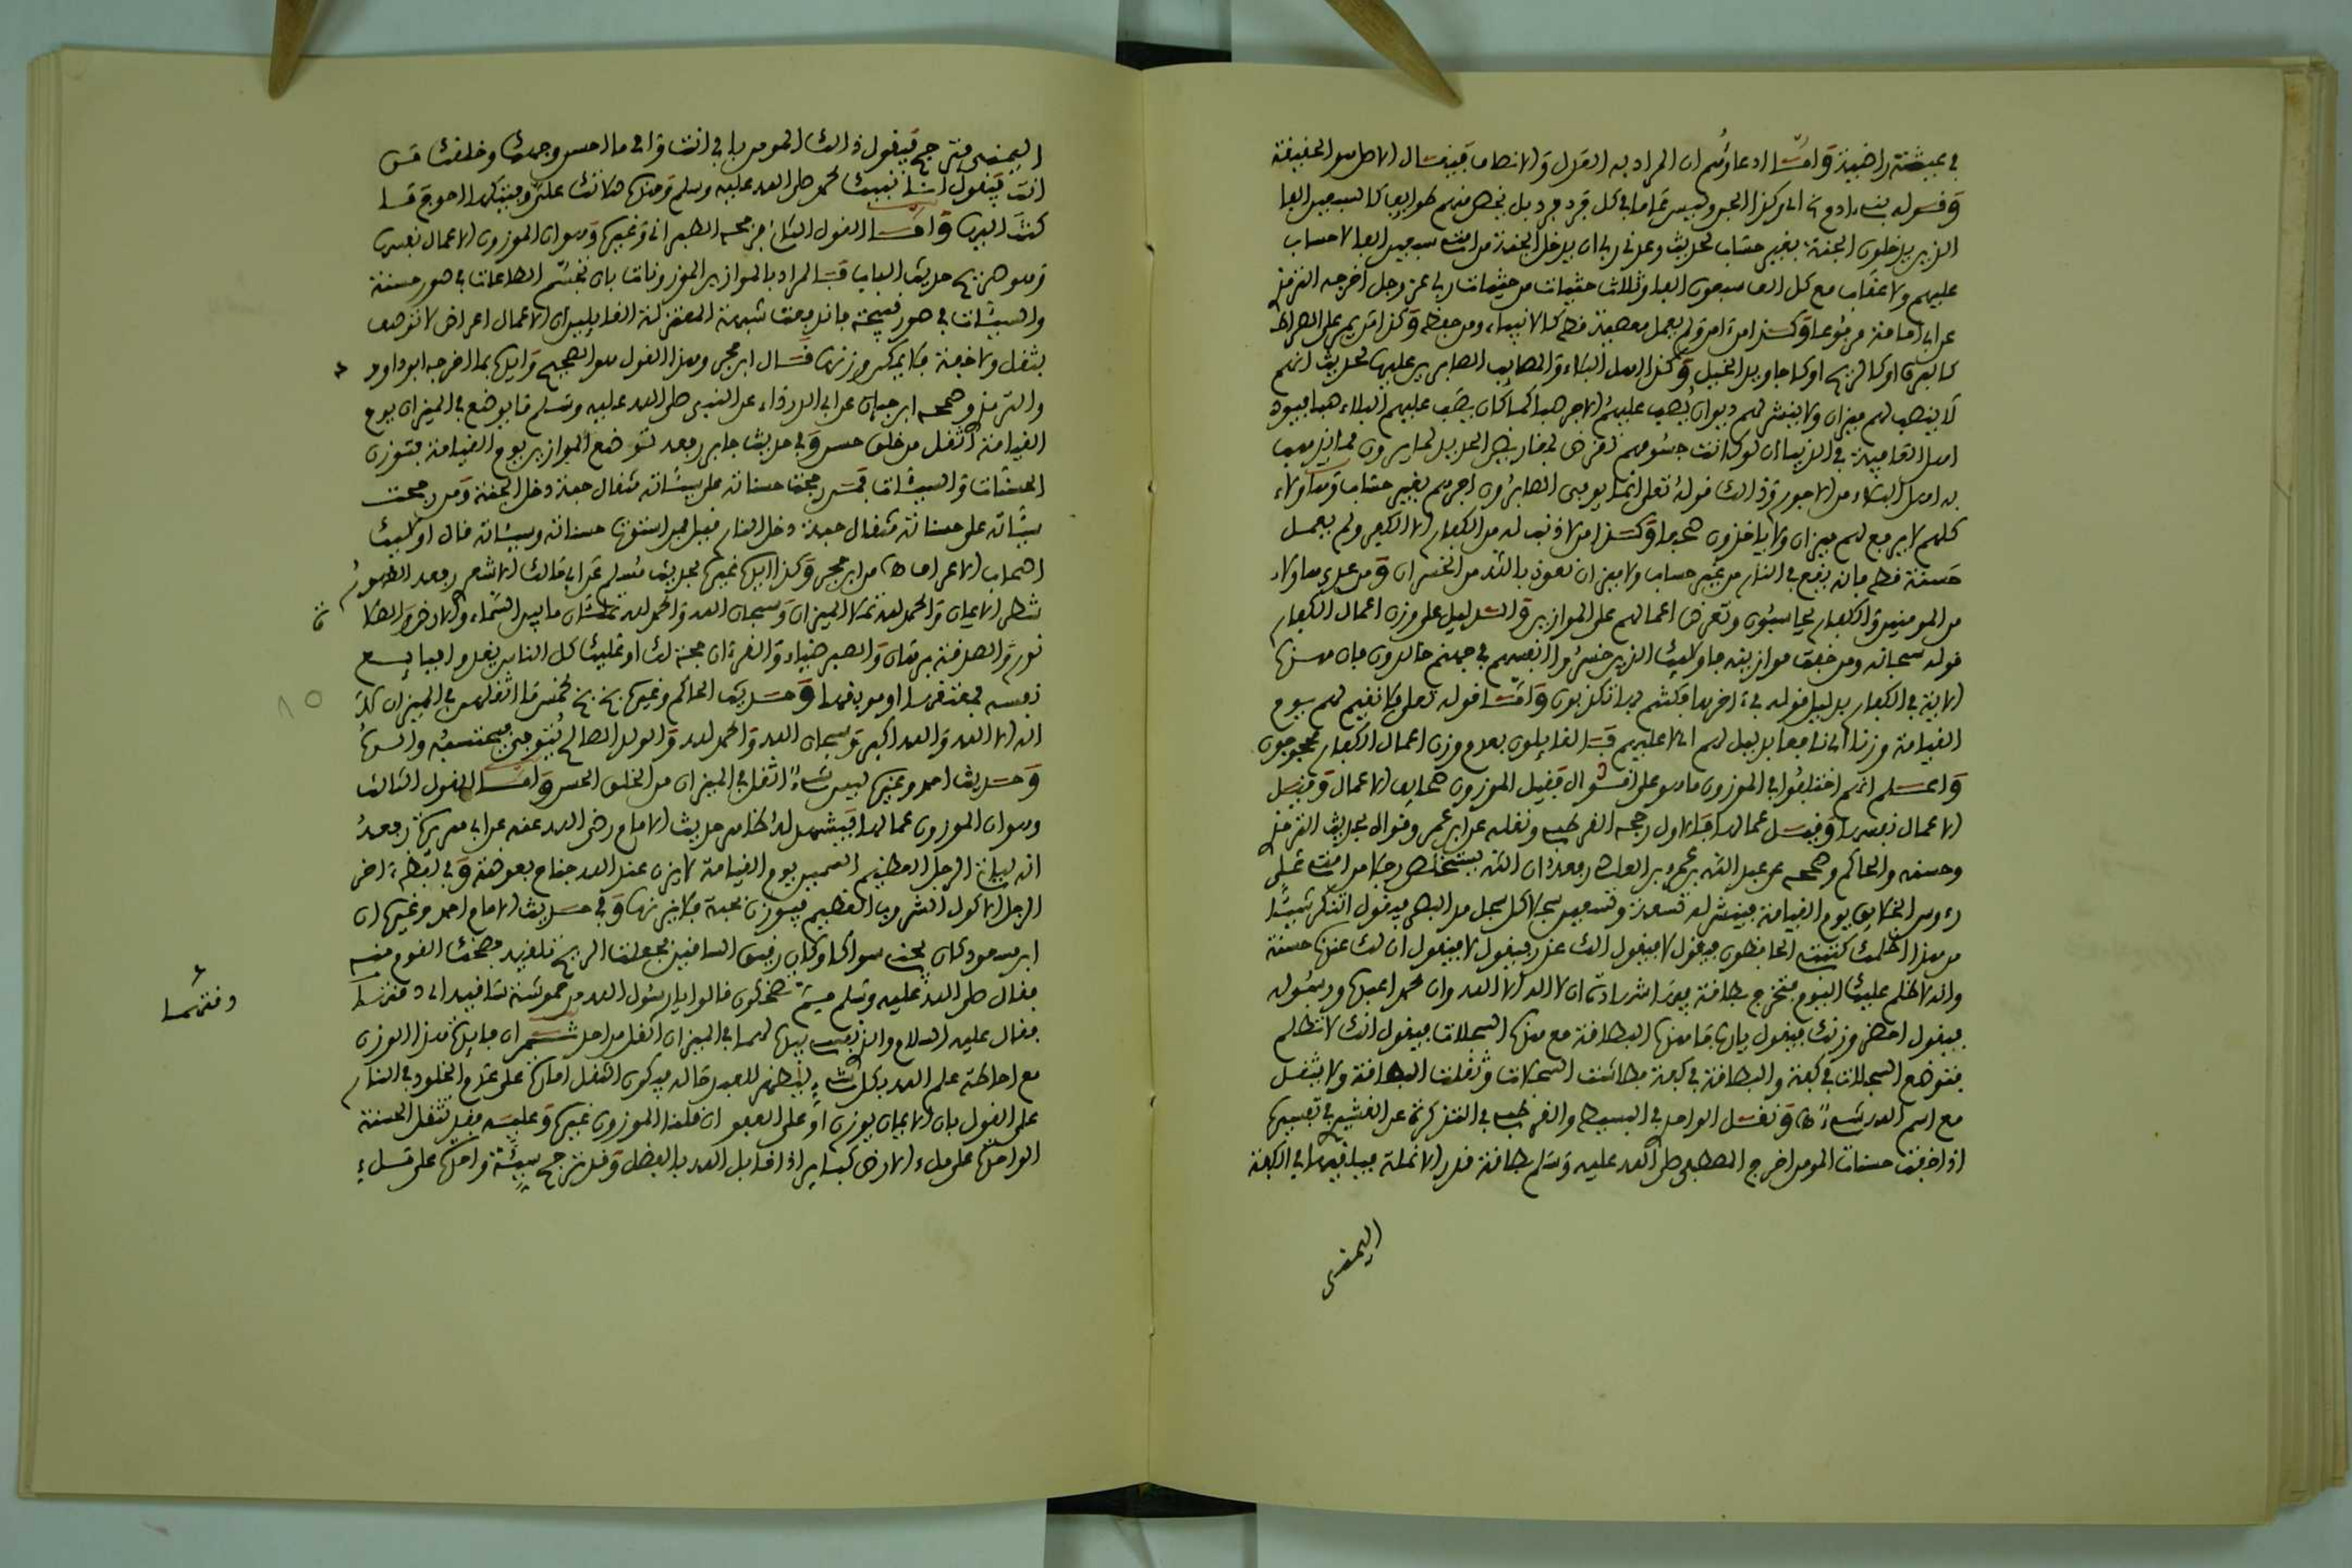 في عيشة راضية وأما ادعاؤهم ان المراد به العدل والانصاف فيقال الاصل هو الحقيقة
وليس عاما في كل فرد فرد بل يخص منهم طوايف كالسبعين الفا
الذين يدخلون الجنة بغير حساب لحديث وعدني ربي ان يدخل الجنة من امتي سبعين الفا لا حساب
عليهم ولا عقاب مع كل الف سبعون الفا وثلاث حثيات من حثيات ربي عز وجل اخرجه الترمذي
عن ابي امامة مرفوعا وكذا من امن ولم يعمل معصية قط كالانبياء ومن حفظ وكذا من يمر على الصراط
كالبرق او كالريح او كاجاويد الخيل وكذا اهل البلاء والمصايب الصابرين عليها لحديث انهم
لا ينصب لهم ميزان ولا ينشر لهم ديوان يصب عليهم الاجر صبا كما كان يصب عليهم البلاء صبا فيود
اهل العافية في الدنيا ان لو كانت جسومهم تقرض بمقاريض الحديد لما يرون مما يذهب
به اهل البلاء من الاجور وذالك قوله تعلى انما يوفى الصابرون اجرهم بغير حساب وهاؤلاء
كلهم لا يرفع لهم ميزان ولا ياخذون صحفا وكذا من لا ذنب له من الكفار الا الكفر ولم يعمل
حسنة قط فانه يقع في النار من غير حساب ولا ميزان نعوذ بالله من الخسران ومن عدى هاؤلاء
من المومنين والكفار يحاسبون وتعرض اعمالهم على الموازين والدليل على وزن اعمال الكفار
قوله سبحانه ومن خفت موازينه فاولئك الذين خسروا انفسهم في جهنم خالدون فان هذه
الاية في الكفار بدليل قوله في ءاخرها فكنتم بها تكذبون وأما قوله تعلى فلا نقيم لهم يوم
القيامة وزنا اي نافعا بدليل لهم اي لا عليهم فالقايلون بعدم وزن اعمال الكفار محجوجون
واعلم انهم اختلفوا في الموزون ما هو على اقوال فقيل الموزون صحايف الاعمال وقيل
الاعمال نفسها وقيل عمالها فالاول رجحه القرطبي ونقله عن ابن عمر وقواه بحديث الترمذي
وحسنه والحاكم وصححه عن عبد الله بن عمرو بن العاص رفعه ان الله يستخلص رجلا من امتي على
رءوس الخلايق يوم القيامة فينشر له تسعة وتسعين سجلا كل سجل مد البصر فيقول اتنكر شيئا
من هذا اظلمك كتبتي الحافظون فيقول لا فيقول الك عذر فيقول لا فيقول ان لك عندنا حسنة
وانه لا ظلم عليك اليوم فتخرج بطاقة فيها اشهد ان لا اله الا الله وان محمدا عبده ورسوله
فيقول احضر وزنك فيقول يارب ما هذه البطاقة مع هذه السجلات فيقول انك لا تظلم
فتوضع السجلات في كفة والبطاقة في كفة فطاشت السجلات وثقلت البطاقة ولا يثقل
مع اسم الله شيء ه ونقل الواحدي في البسيط والقرطبي في التذكرة عن القشيري في تفسيرها
اذا خفت حسنات المومن اخرج المصطفى صلى الله عليه وسلم بطاقة قدر الانملة فيلقيها في الكفة
اليمنى
اليمنى فترجح فيقول ذالك المومن بابي انت وامي ما احسن وجهك وخلقك من
انت فيقول انا نبيك محمد صلى الله عليه وسلم وهذه صلاتك علي وفيتكها احوج ما
كنت اليها وأما القول الثاني صححه الطبراني وغيره وهو ان الموزون الاعمال نفسها
وهو صريح حديث الباب فالمراد بالموازين الموزونات بان تجسم الطاعات في صور حسنة
والسيئات في صور قبيحة فاندفعت شبهة المعتزلة القايلين ان الاعمال اعراض لا توصف
بثقل ولا خفة فلا يمكن وزنها قال ابن حجر وهذا القول هو الصحيح وايده بما اخرجه ابو داود
والترمذي وصححه ابن حبان عن ابي الدرداء عن النبي صلى الله عليه وسلم ما يوضع في الميزان يوم
القيامة اثقل من خلق حسن وفي حديث جابر رفعه توضع الموازين يوم القيامة فتوزن
الحسنات والسيئات فمن رجحت حسناته على سيئاته مثقال حبة دخل الجنة ومن رجحت
سيئاته على حسناته مثقال حبة دخل النار قيل فمن استوت حسناته وسيئاته قال اولئك
اصحاب الاعراف ه من ابن حجر وكذا ايده غيره بحديث مسلم عن ابي مالك الاشعري رفعه الطهور
شطر الايمان والحمد لله تملا الميزان وسبحان الله والحمد لله تملئان ما بين السماء والارض والصلاة
نور والصدقة برهان والصبر ضياء والقرءان حجة لك او عليك كل الناس يغدو فبايع
نفسه فمعتقها او موبقها وحديث الحاكم وغيره بخ بخ لخمس ما اثقلهن في الميزان لا
اله الا الله والله اكبر وسبحان الله والحمد لله والولد الصالح يتوفى فيحتسبه والده
وحديث احمد وغيره ليس شيء اثقل في الميزان من الخلق الحسن وأما القول الثالث
وهو ان الموزون عمالها فيشهد له ظاهر حديث الامام رضي الله عنه عن ابي هريرة رفعه
انه لياتي الرجل العظيم السمين يوم القيامة لا يزن عند الله جناح بعوضة وفي لفظ ءاخر
الرجل الاكول الشروب العظيم فيوزن بحبة فلا يزنها وفي حديث الامام احمد وغيره ان
ابن مسعود كان يجني سواكا وكان رقيق الساقين فجعلت الريح تلقيه فضحك القوم منه
فقال صلى الله عليه وسلم مم تضحكون قالوا يا رسول الله من حموشة ساقيه اي دقتهما
فقال عليه السلام والذي نفسي بيده لهما في الميزان اثقل من احد ثم ان فايدة هذا الوزن
مع احاطة علم الله بكل شيء ليظهر للعبد حاله فيكون الثقل امارة على عدم الخلود في النار
على القول بان الايمان يوزن او على العفو ان قلنا الموزون غيره وعليه فقد تثقل الحسنة
الواحدة على ملء الارض كباير اذا قابل الله بالفضل وقد ترجح سيئة واحدة على ملء
دقتهما